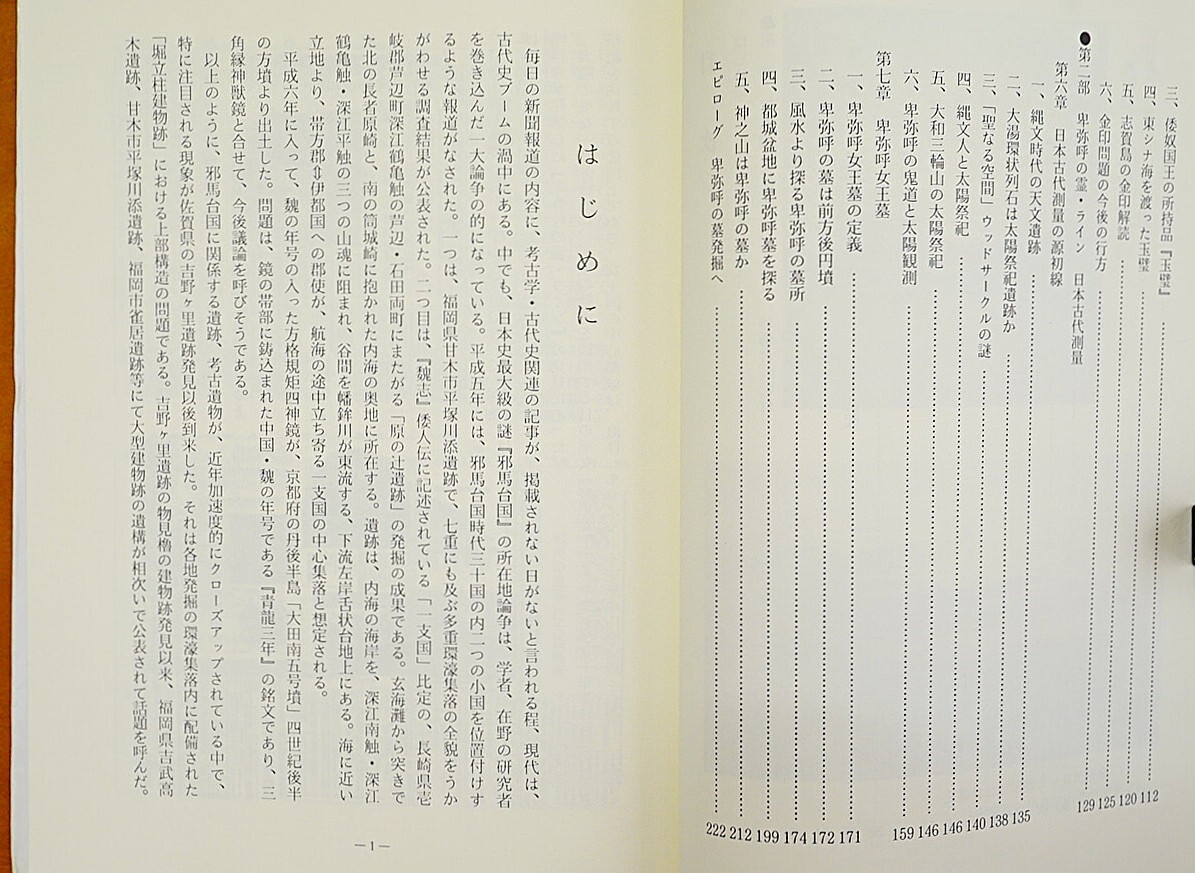 三、倭奴国王の所持品『玉璧』……112
四、東シナ海を渡った玉璧……120
五、志賀島の金印解読……125
六、金印問題の今後の行方……129
●第二部 卑弥呼の霊・ライン 日本古代測量
第六章 日本古代測量の源初線
一、縄文時代の天文遺跡……135
二、大湯環状列石は太陽祭祀遺跡か……138
三、「聖なる空間」ウッドサークルの謎……140
四、縄文人と太陽祭祀……146
五、大和三輪山の太陽祭祀……146
六、卑弥呼の鬼道と太陽観測……159
第七章 卑弥呼女王墓
一、卑弥呼女王墓の定義……171
二、卑弥呼の墓は前方後円墳……172
三、風水より探る卑弥呼の墓所……174
四、都城盆地に卑弥呼墓を探る……199
五、神之山は卑弥呼の墓か……212
エピローグ 卑弥呼の墓発掘へ……222
はじめに
毎日の新聞報道の内容に、考古学・古代史関連の記事が、掲載されない日がないと言われる程、現代は、
古代史ブームの渦中にある。中でも、日本史最大級の謎『邪馬台国』の所在地論争は、学者、在野の研究者
を巻き込んだ一大論争の的になっている。平成五年には、邪馬台国時代三十国の内二つの小国を位置付けす
るような報道がなされた。一つは、福岡県甘木市平塚川添遺跡で、七重にも及ぶ多重環濠集落の全貌をうか
がわせる調査結果が公表された。二つ目は、『魏志』倭人伝に記述されている「一支国」比定の、長崎県壱
岐郡芦辺町深江鶴亀触の芦辺・石田両町にまたがる「原の辻遺跡」の発掘の成果である。玄海灘から突きで
た北の長者原崎と、南の筒城崎に抱かれた内海の奥地に所在する。遺跡は、内海の海岸を、深江南触・深江
鶴亀触・深江平触の三つの山魂に阻まれ、谷間を幡鉾川が東流する、下流左岸舌状台地上にある。海に近い
立地より、帯方郡⇔伊都国への郡使が、航海の途中立ち寄る一支国の中心集落と想定される。
平成六年に入って、魏の年号の入った方格規矩四神鏡が、京都府の丹後半島「大田南五号墳」四世紀後半
の方墳より出土した。問題は、鏡の帯部に鋳込まれた中国・魏の年号である『青龍三年』の銘文であり、三
角縁神獣鏡と合せて、今後議論を呼びそうである。
以上のように、邪馬台国に関係する遺跡、考古遺物が、近年加速度的にクローズアップされている中で、
特に注目される現象が佐賀県の吉野ヶ里遺跡発見以後到来した。それは各地発掘の環濠集落内に配備された
「堀立柱建物跡」における上部構造の問題である。吉野ヶ里遺跡の物見櫓の建物跡発見以来、福岡県吉武高
木遺跡、甘木市平塚川添遺跡、福岡市雀居遺跡等にて大型建物跡の遺構が相次いで公表されて話題を呼んだ。
―1―